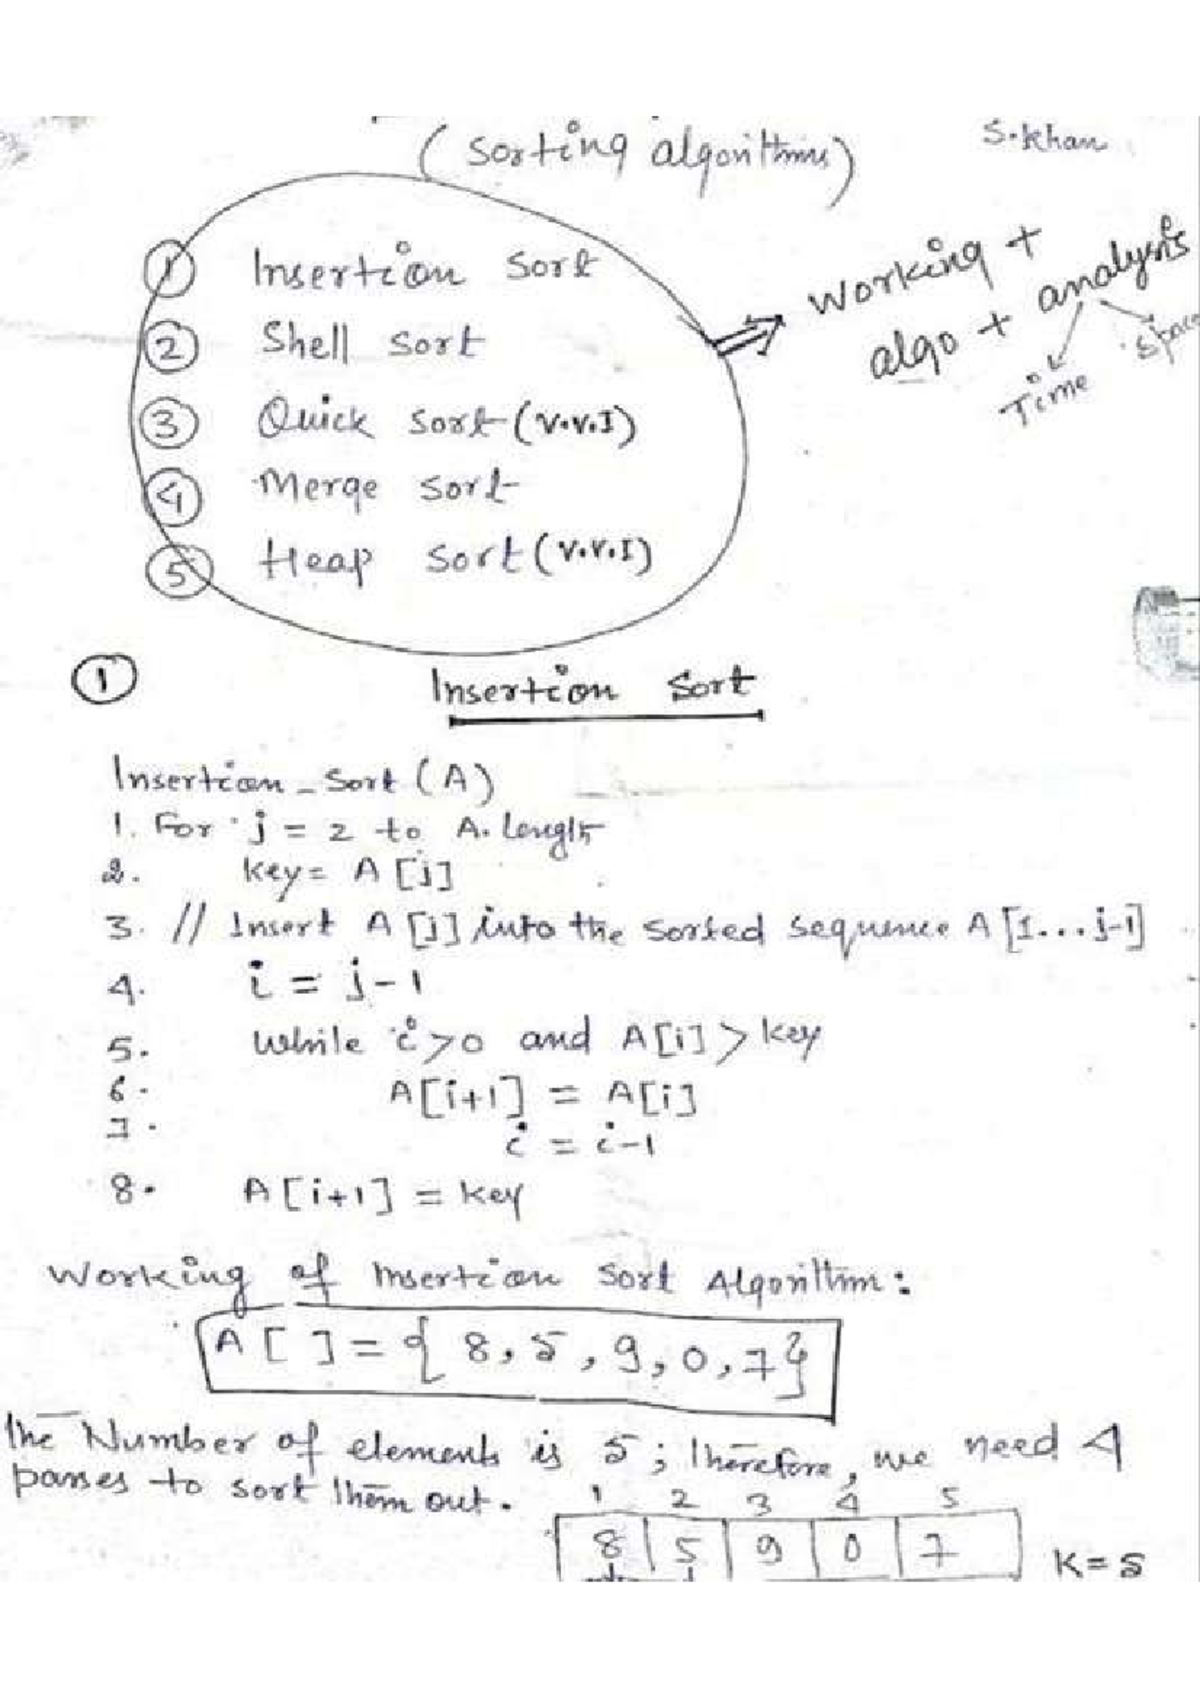 (Sorting algorithms)
S.Khan
① Insertion Sort
② Shell Sort
③ Quick Sort (V.V.I)
④ Merge Sort
⑤ Heap Sort (V.V.I)
Working +
algo + analysis
Time
Space
① Insertion Sort
Insertion_Sort (A)
1. For j = 2 to A. Length
2. key = A [j]
3. // Insert A [j] into the sorted sequence A [1...j-1]
4. i = j-1
5. While i>0 and A[i] > key
6. A[i+1] = A[i]
7. i = i-1
8. A[i+1] = key
Working of Insertion Sort Algorithm:
A[ ] = { 8, 5, 9, 0, 7}
The Number of elements is 5; Therefore, we need 4
passes to sort them out.
1 2 3 4 5
8 5 9 0 7
K = 5